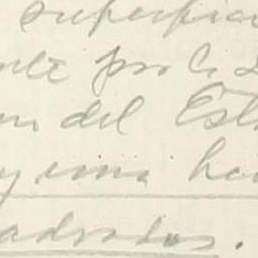 superfic
nte por la
en del Est
y una ha
adrados.